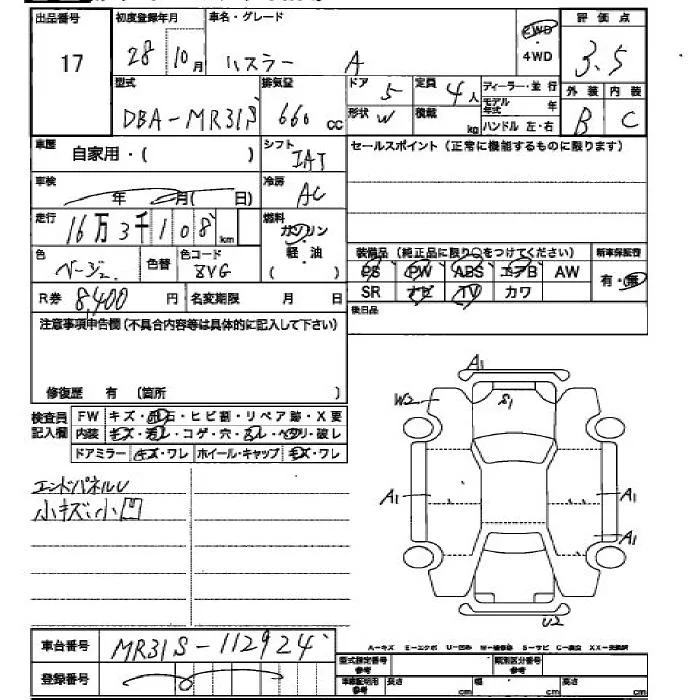 出品番号 初度登録年月 車名・グレード 評価点
17 28 10月 ハスラー A 2WD・4WD 3.5
型式 排気量 ドア 定員 ディーラー・並行 外装 内装
DBA-MR31S 660cc 5 4人 モデル年式 年 B C
形状 W 積載 kg ハンドル 左・右
車歴 自家用・( ) シフト IAT セールスポイント(正常に機能するものに限ります)
車検 年 月( 日) 冷房 AC
走行 16万3千108km 燃料 ガソリン・軽油( )
色 ベージュ 色替 色コード ZVG
装備品(純正品に限り○をつけてください) 新車保証書
PS PW ABS エアB AW 有・無
SR ナビ TV カワ
R券 8,400円 名変期限 月 日 後日品
注意事項申告欄(不具合内容等は具体的に記入して下さい)
修復歴 有 (箇所 )
検査員記入欄 FW キズ・飛石・ヒビ割・リペア跡・X要
内装 キズ・汚レ・コゲ・穴・スレ・ヘタリ・破レ
ドアミラー キズ・ワレ ホイール・キャップ キズ・ワレ
エンドパネルU
小キズ小凹
A1
W2
S1
A1
A1
A1
U2
車台番号 MR31S-112924
登録番号
A-キズ E-エクボ U-凹み W-補修跡 S-サビ C-腐食 XX-交換済
型式指定番号 参考 類別区分番号 参考
車庫証明用 参考 長さ cm 幅 cm 高さ cm